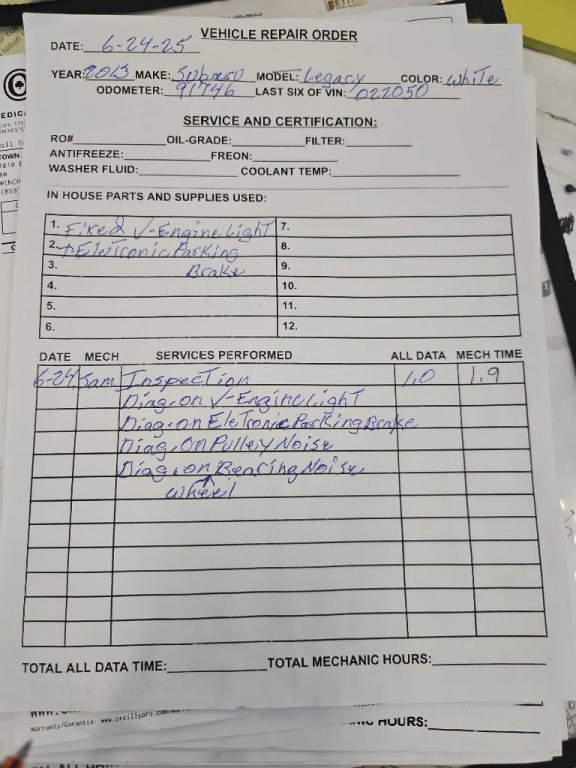 VEHICLE REPAIR ORDER
DATE: 6-24-25
YEAR: 2013 MAKE: Subreso MODEL: Legacy COLOR: White
ODOMETER: 91746 LAST SIX OF VIN: 022050
SERVICE AND CERTIFICATION:
RO# OIL-GRADE: FILTER:
ANTIFREEZE: FREON:
WASHER FLUID: COOLANT TEMP:
IN HOUSE PARTS AND SUPPLIES USED:
1. Fixed V-Engine Light 7.
2. + EleTronic Parking 8.
3. Brake 9.
4. 10.
5. 11.
6. 12.
DATE MECH SERVICES PERFORMED ALL DATA MECH TIME
6-24 Sam InspecTion 1.0 1.9
Diag. on V-Engine LighT
Diag. on EleTronic Parking Brake
Diag. On Pullery Noise
Diag. on Bearing Noise
wheel
TOTAL ALL DATA TIME: TOTAL MECHANIC HOURS:
HOURS: